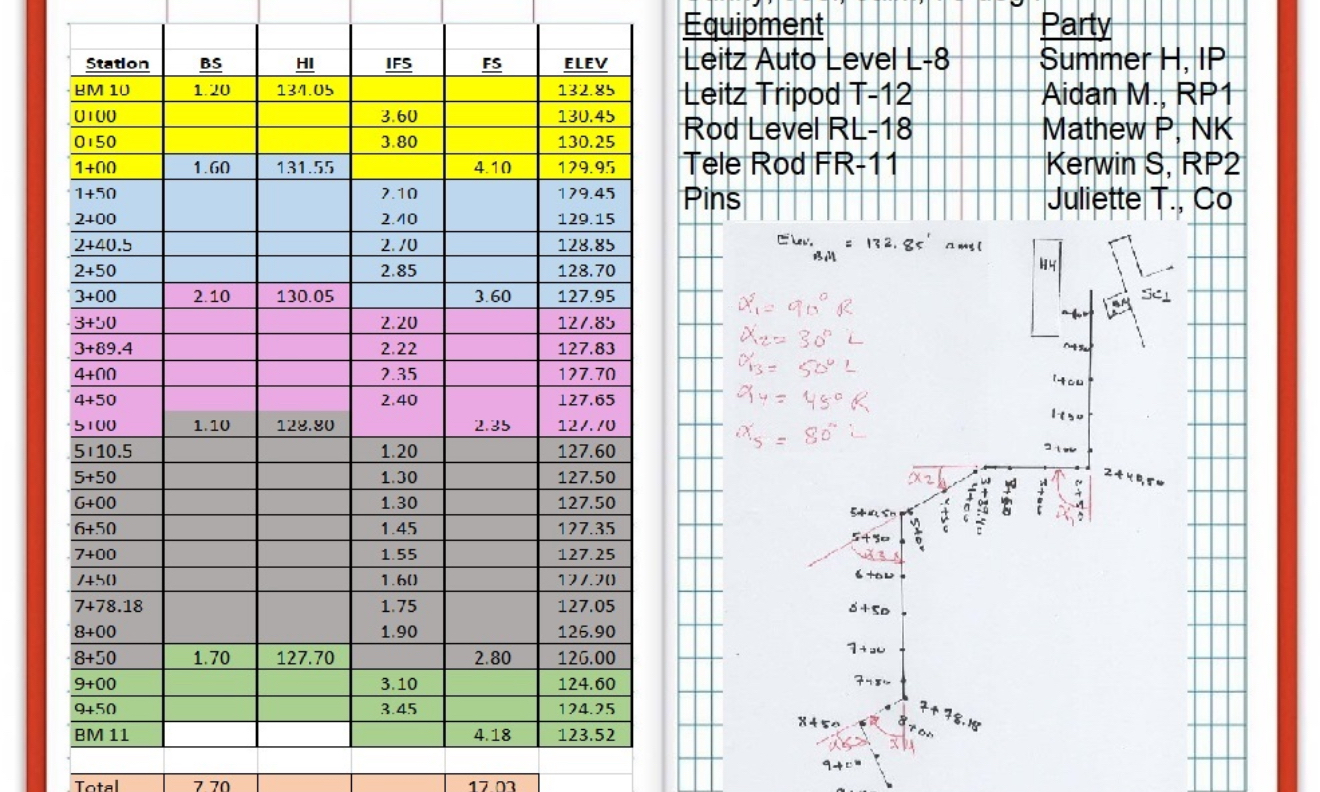 Station BS HI IFS FS ELEV
BM 10 1.20 134.05 132.85
0+00 3.60 130.45
0+50 3.80 130.25
1+00 1.60 131.55 4.10 129.95
1+50 2.10 129.45
2+00 2.40 129.15
2+40.5 2.70 128.85
2+50 2.85 128.70
3+00 2.10 130.05 3.60 127.95
3+50 2.20 127.85
3+89.4 2.22 127.83
4+00 2.35 127.70
4+50 2.40 127.65
5+00 1.10 128.80 2.35 127.70
5+10.5 1.20 127.60
5+50 1.30 127.50
6+00 1.30 127.50
6+50 1.45 127.35
7+00 1.55 127.25
7+50 1.60 127.20
7+78.18 1.75 127.05
8+00 1.90 126.90
8+50 1.70 127.70 2.80 126.00
9+00 3.10 124.60
9+50 3.45 124.25
BM 11 4.18 123.52
Total 7.70 17.03
Equipment Party
Leitz Auto Level L-8 Summer H, IP
Leitz Tripod T-12 Aidan M., RP1
Rod Level RL-18 Mathew P, NK
Tele Rod FR-11 Kerwin S, RP2
Pins Juliette T., Co
Elev. BM = 132.85' amsl
HH
BM
SC1
α1= 90° R
α2= 30° L
α3= 50° L
α4= 45° R
α5= 80° L
0+50
1+00
1+50
2+00
2+40.50
2+50
3+00
3+50
3+89.40
4+00
4+50
α2
5+00
5+50
α3
6+00
7+00
7+50
7+78.18
8+00
8+50
α5
α4
9+00